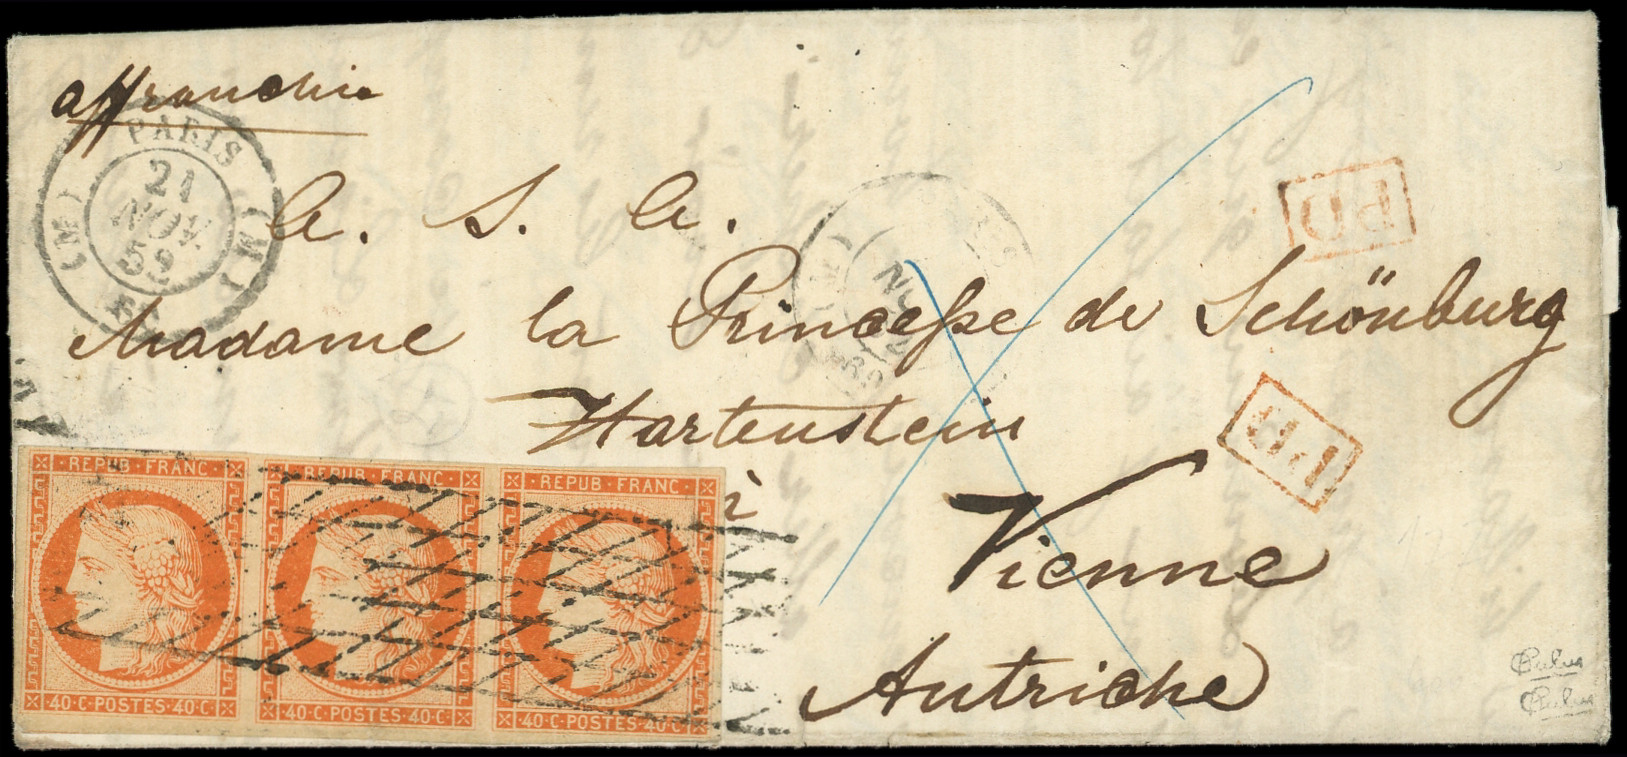 affranchie
PARIS
(M) (M)
21
NOV.
52
A. S. A.
Madame la Princesse de Schönburg
Hartenstein
à
Vienne
Autriche
PD
PD
REPUB FRANC
40·C·POSTES·40·C
REPUB FRANC
40·C·POSTES·40·C
REPUB FRANC
40·C·POSTES·40·C
Calves
Calves